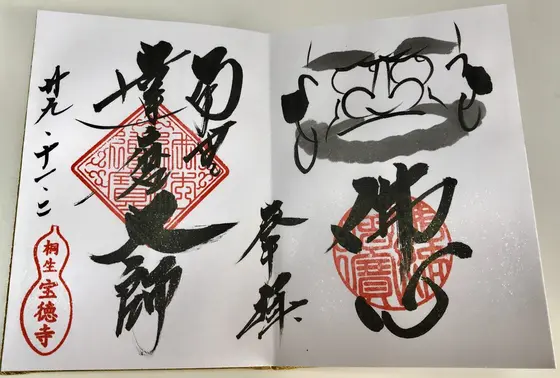 佛心
奉拝
南無
達磨大師
廿九・十一・二
桐生
宝徳寺